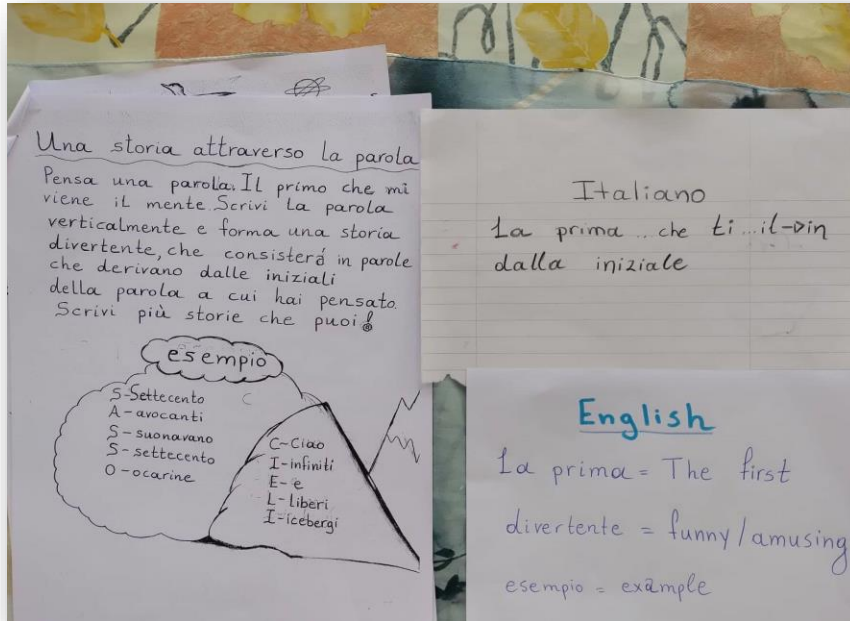 Una storia attraverso la parola
Pensa una parola. Il primo che mi
viene il mente. Scrivi la parola
verticalmente e forma una storia
divertente, che consisterá in parole
che derivano dalle iniziali
della parola a cui hai pensato.
Scrivi più storie che puoi!
esempio
S-Settecento
A-avocanti
S-suonavano
S-settecento
O-ocarine
C-Ciao
I-infiniti
E-e
L-liberi
I-icebergi
Italiano
La prima ... che ti ... il→in
dalla iniziale
English
La prima = The first
divertente = funny/amusing
esempio = example